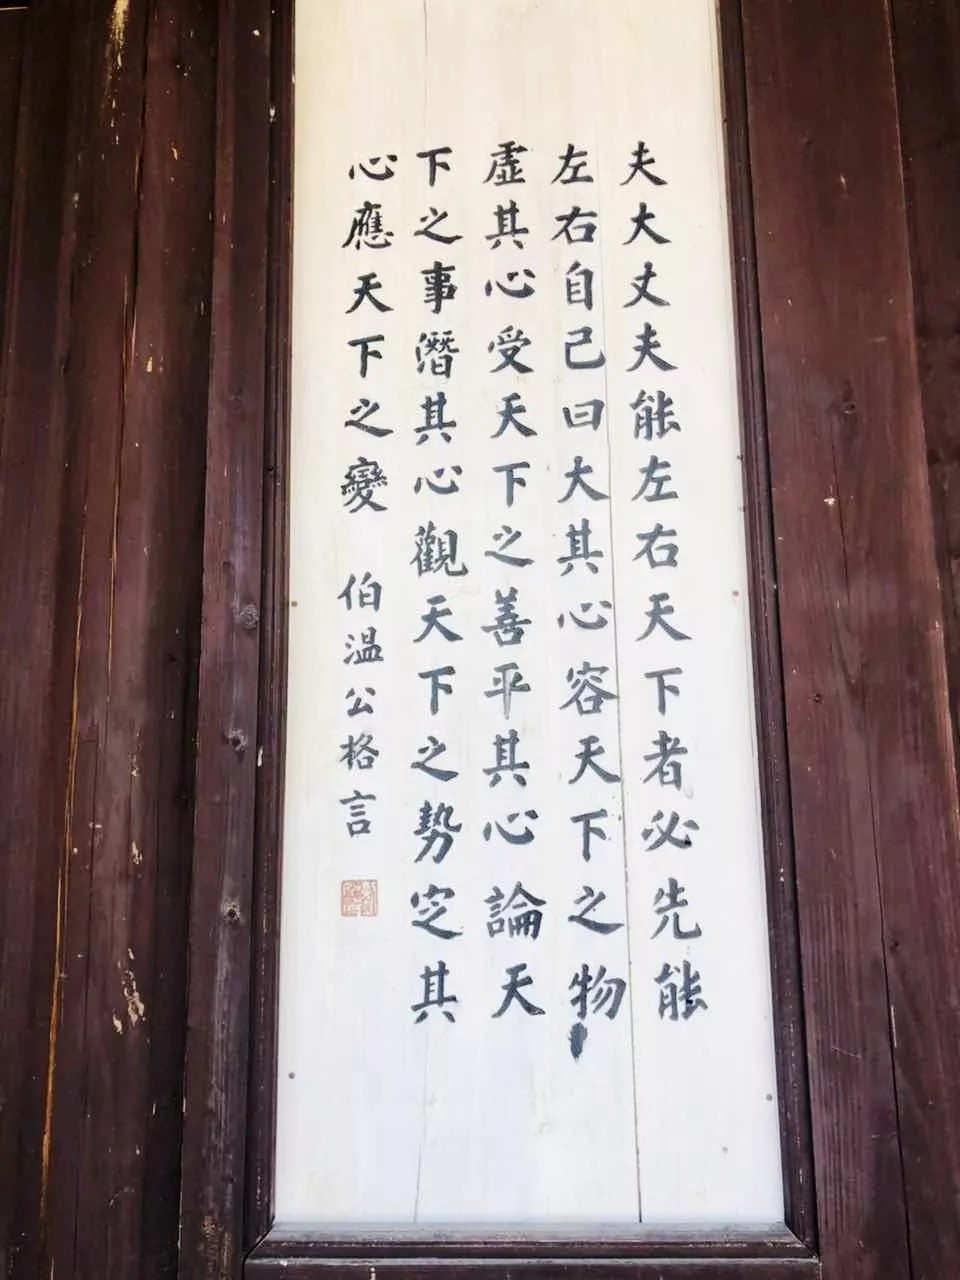 夫大丈夫能左右天下者必先能
左右自己曰大其心容天下之物
虛其心受天下之善平其心論天
下之事潛其心觀天下之勢定其
心應天下之變 伯溫公格言